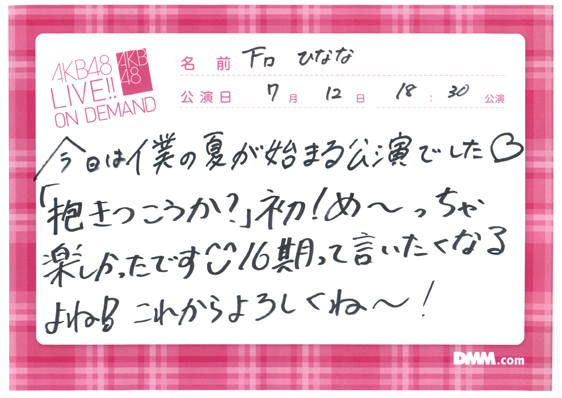 AKB48
LIVE!!
ON DEMAND
AKB
48
名前 下口 ひなな
公演日 7月 12日 18:30 公演
今日は僕の夏が始まる公演でした♡
「抱きつこうか?」初!め〜っちゃ
楽しかったです 16期って言いたくなる
よね これからよろしくね〜!
DMM.com